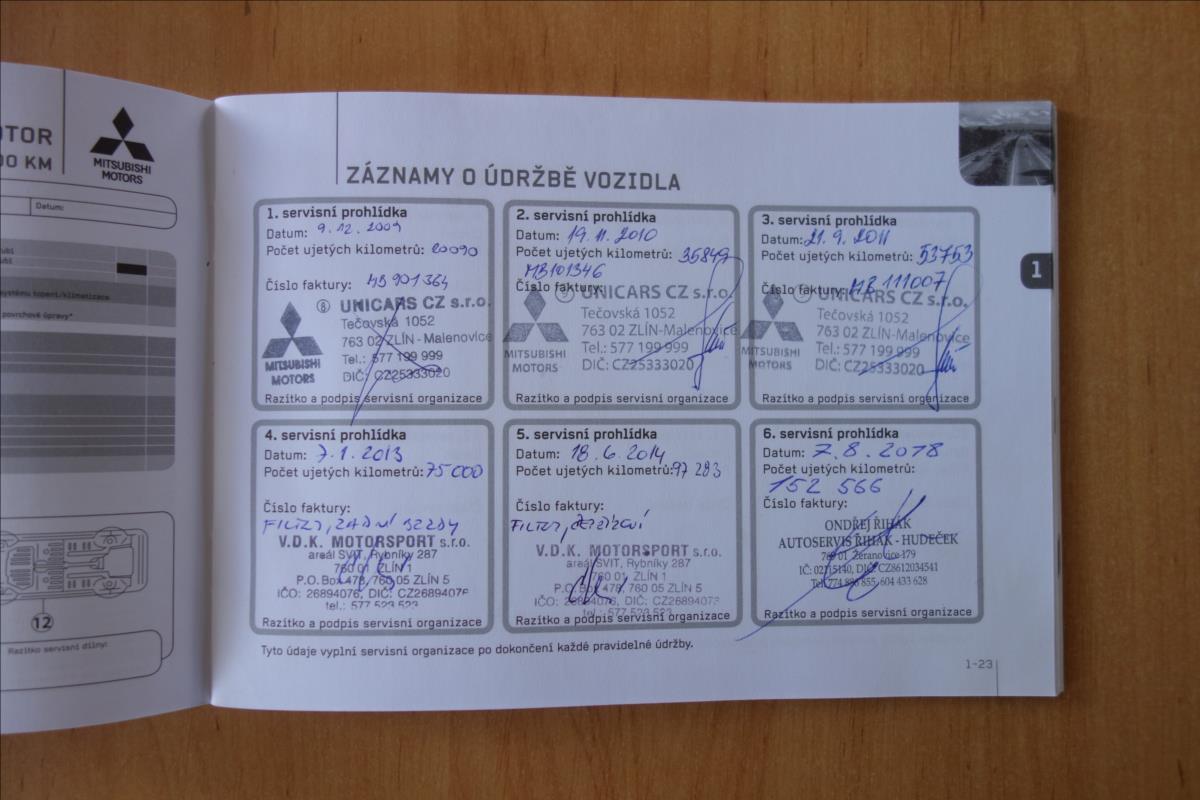 OTOR
00 KM
MITSUBISHI
MOTORS
Datum:
systému topení/klimatizace
povrchové úpravy*
12
Razítko servisní dílny:
ZÁZNAMY O ÚDRŽBĚ VOZIDLA
1. servisní prohlídka
Datum: 9.12.2009
Počet ujetých kilometrů: 20090
Číslo faktury: MB901364
8 UNICARS CZ s.r.o.
Tečovská 1052
763 02 ZLÍN-Malenovice
Tel.: 577 199 999
DIČ: CZ25333020
MITSUBISHI
MOTORS
Razítko a podpis servisní organizace
2. servisní prohlídka
Datum: 19.11.2010
Počet ujetých kilometrů: 35849
MB101346
Číslo faktury:
9 UNICARS CZ s.r.o.
Tečovská 1052
763 02 ZLÍN-Malenovice
Tel.: 577 199 999
DIČ: CZ25333020
MITSUBISHI
MOTORS
Razítko a podpis servisní organizace
3. servisní prohlídka
Datum: 21.9.2011
Počet ujetých kilometrů: 53753
Číslo faktury: MB111007
9 UNICARS CZ s.r.o.
Tečovská 1052
763 02 ZLÍN-Malenovice
Tel.: 577 199 999
DIČ: CZ25333020
MITSUBISHI
MOTORS
Razítko a podpis servisní organizace
1
4. servisní prohlídka
Datum: 7.1.2013
Počet ujetých kilometrů: 75000
Číslo faktury:
FILTRY, ZADNÍ BRZDY
V.D.K. MOTORSPORT s.r.o.
areál SVIT, Rybníky 287
760 01 ZLÍN 1
P.O. Box 478, 760 05 ZLÍN 5
IČO: 26894076, DIČ: CZ26894076
tel.: 577 523 523
Razítko a podpis servisní organizace
5. servisní prohlídka
Datum: 18.6.2014
Počet ujetých kilometrů: 97 283
Číslo faktury:
FILTRY,
V.D.K. MOTORSPORT s.r.o.
areál SVIT, Rybníky 287
760 01 ZLÍN 1
P.O. Box 478, 760 05 ZLÍN 5
IČO: 26894076, DIČ: CZ26894076
tel.: 577 523 523
Razítko a podpis servisní organizace
6. servisní prohlídka
Datum: 7.8.2018
Počet ujetých kilometrů:
152 566
Číslo faktury:
ONDŘEJ ŘIHÁK
AUTOSERVIS ŘIHÁK - HUDEČEK
769 01 Žeranovice 179
IČ: 02715140, DIČ: CZ8612034541
Tel. 855, 604 433 628
Razítko a podpis servisní organizace
Tyto údaje vyplní servisní organizace po dokončení každé pravidelné údržby.
1-23